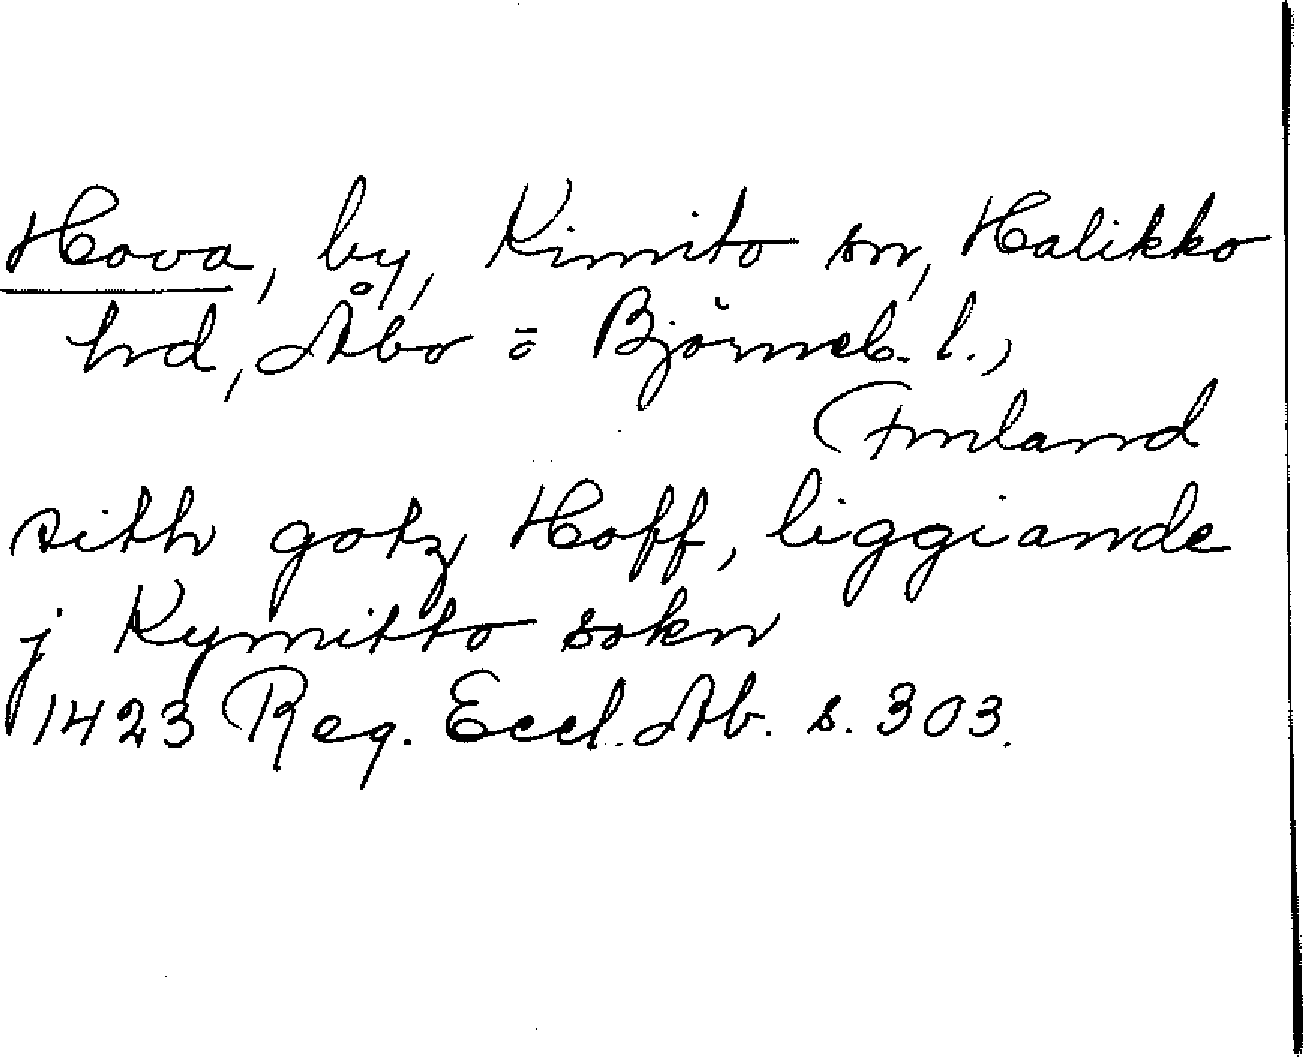 Hova, by, Kimito sn, Halikko
hd, Åbo o Björneb. l.,
Finland
sith gotz Hoff, liggiande
j Kymitto sokn
1423 Reg. Eccl. Ab. s. 303.